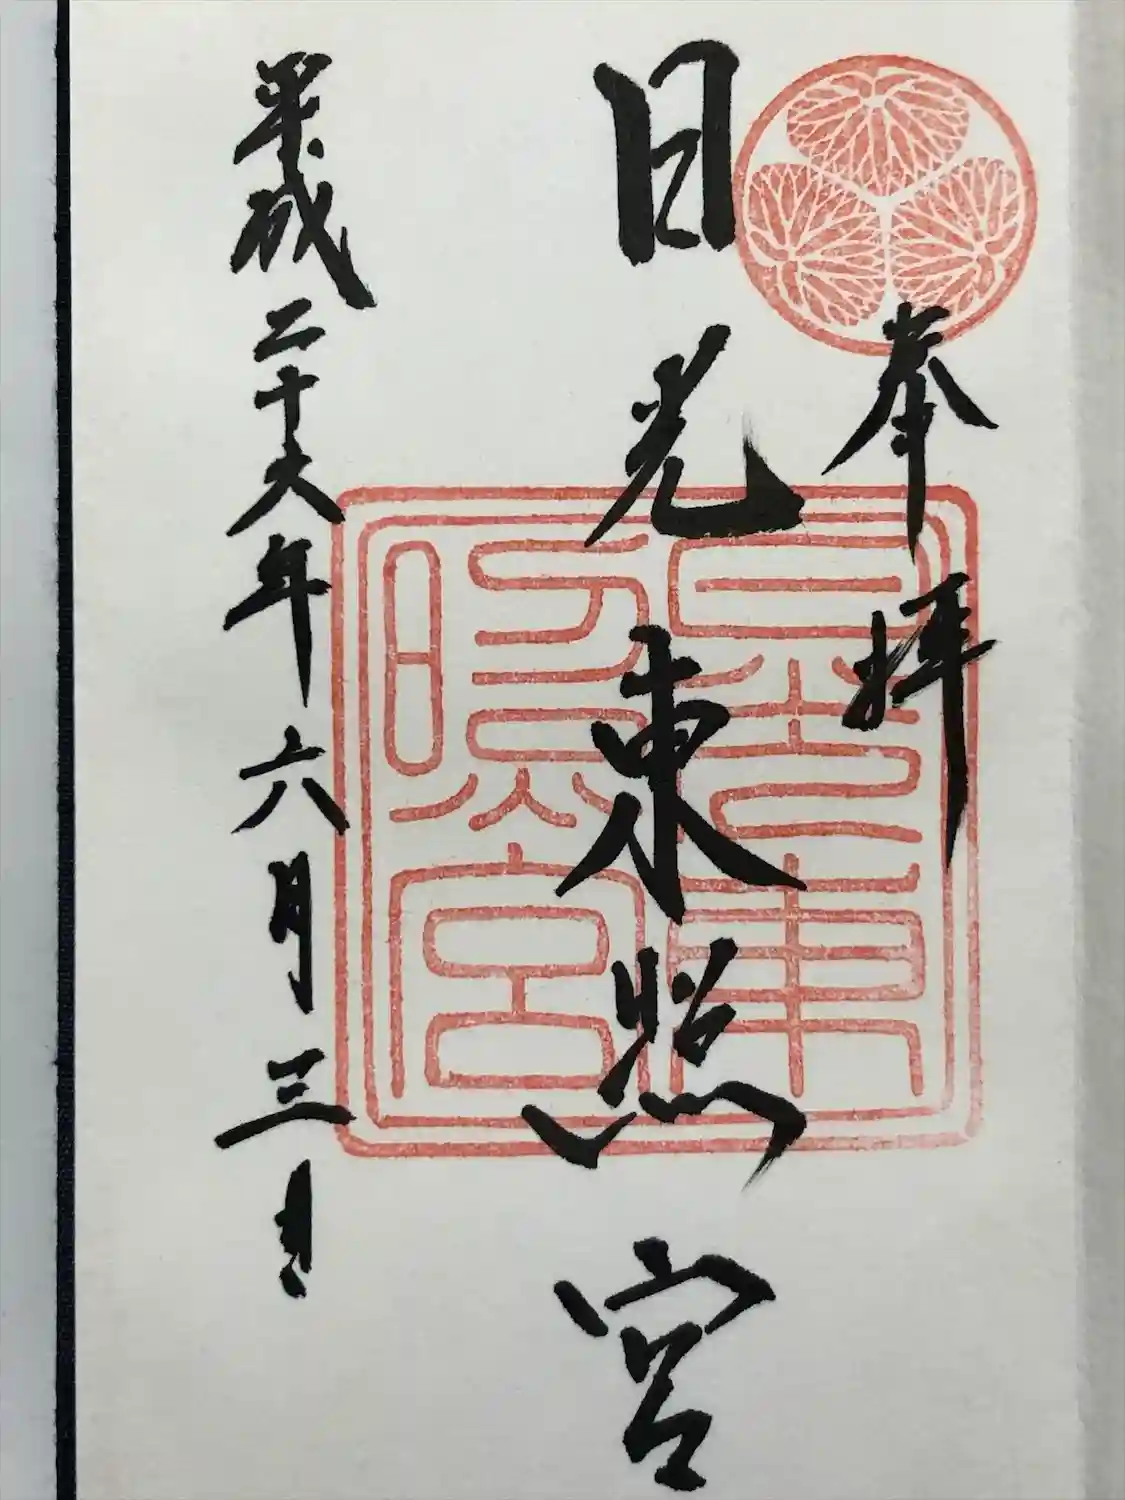 奉拝
日光東照宮
平成二十六年六月三日
日光東
照宮